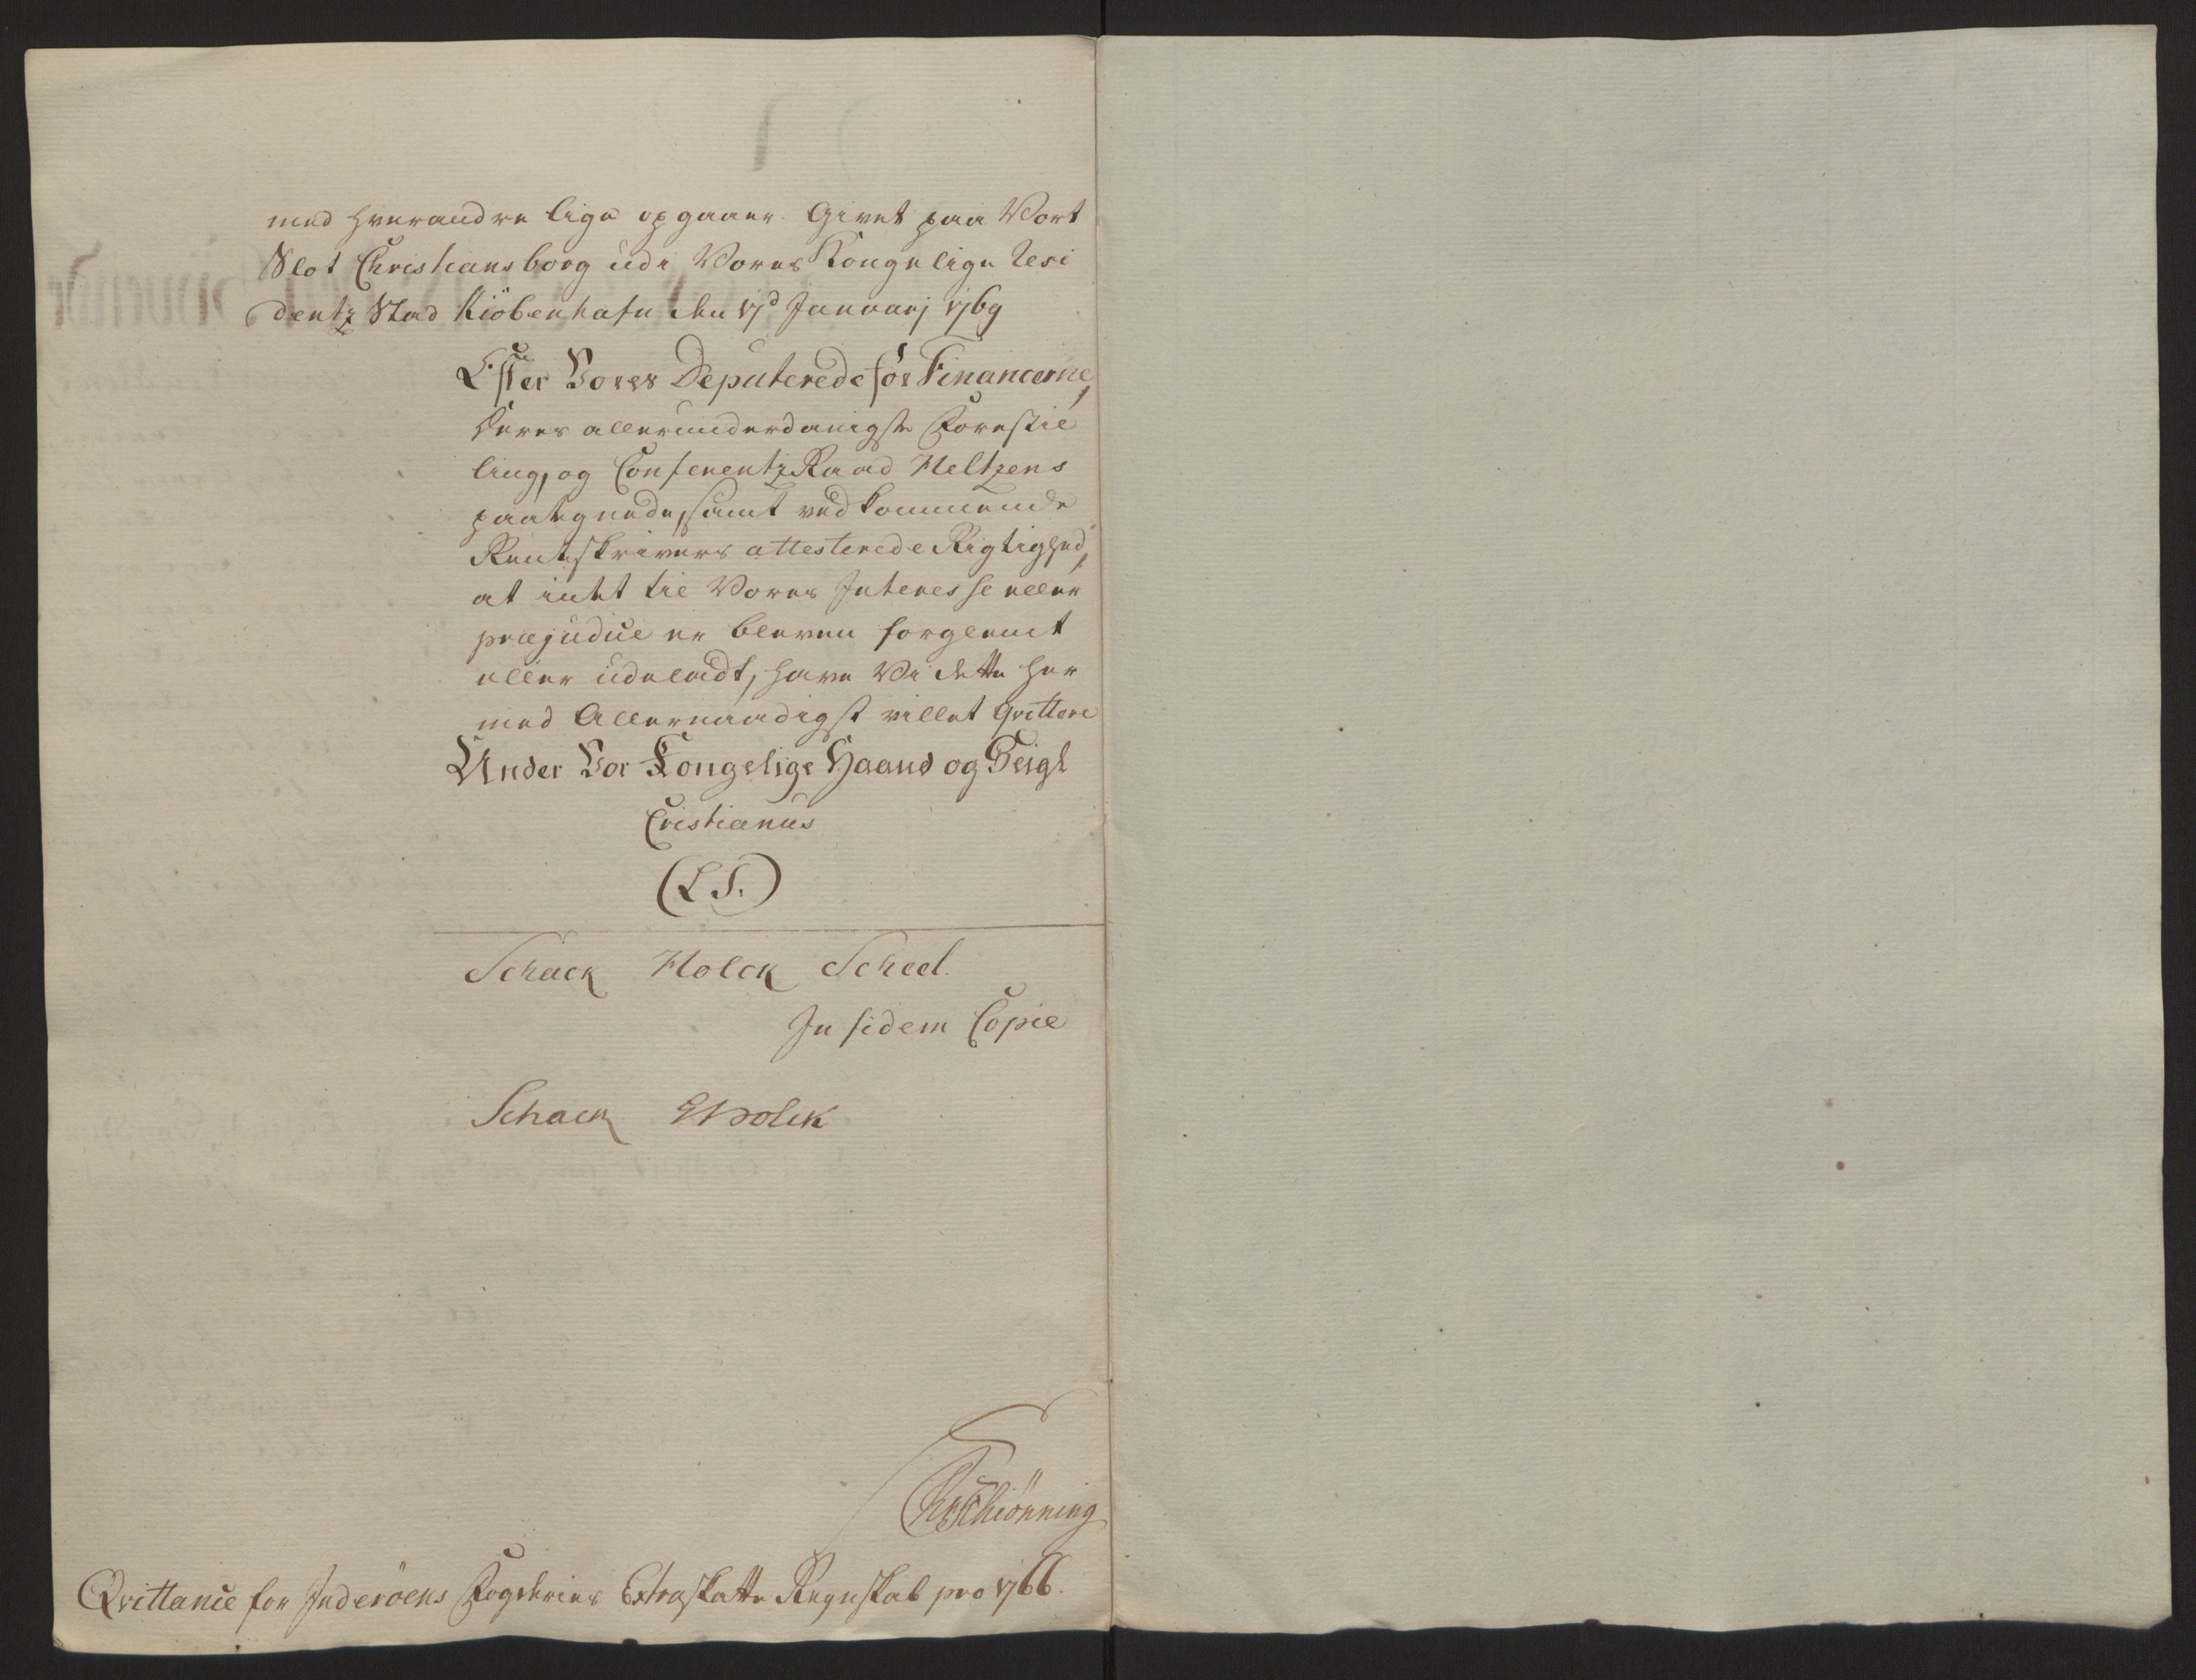 med hverandre lige opgaaer. Givet paa Vort
Slot Christiansborg udi Vores Kongelige Resi
dentz Stad Kiöbenhafn den 17d Januarj 1769
Efter Vores Deputerede for Financerne,
deres allerunderdanigste Forestil
ling, og Conferentz Raad Heltzens
paategnede, samt vedkommende
Rentskrivers attesterede Rigtighed,
at intet til Vores Interesse eller
præjudice er bleven forglemt
eller udeladt, have Vi dette her
med Allernaadigst villet qvittere
Under Vor Kongelige Haand og Seigl
Cristianus
(L S.)
Schack Holck Scheel.
In fidem Copie
Schack Holck
Schiönning
Qvittance for Inderöens Fogderies Extraskatte Regnskab pro 1766.